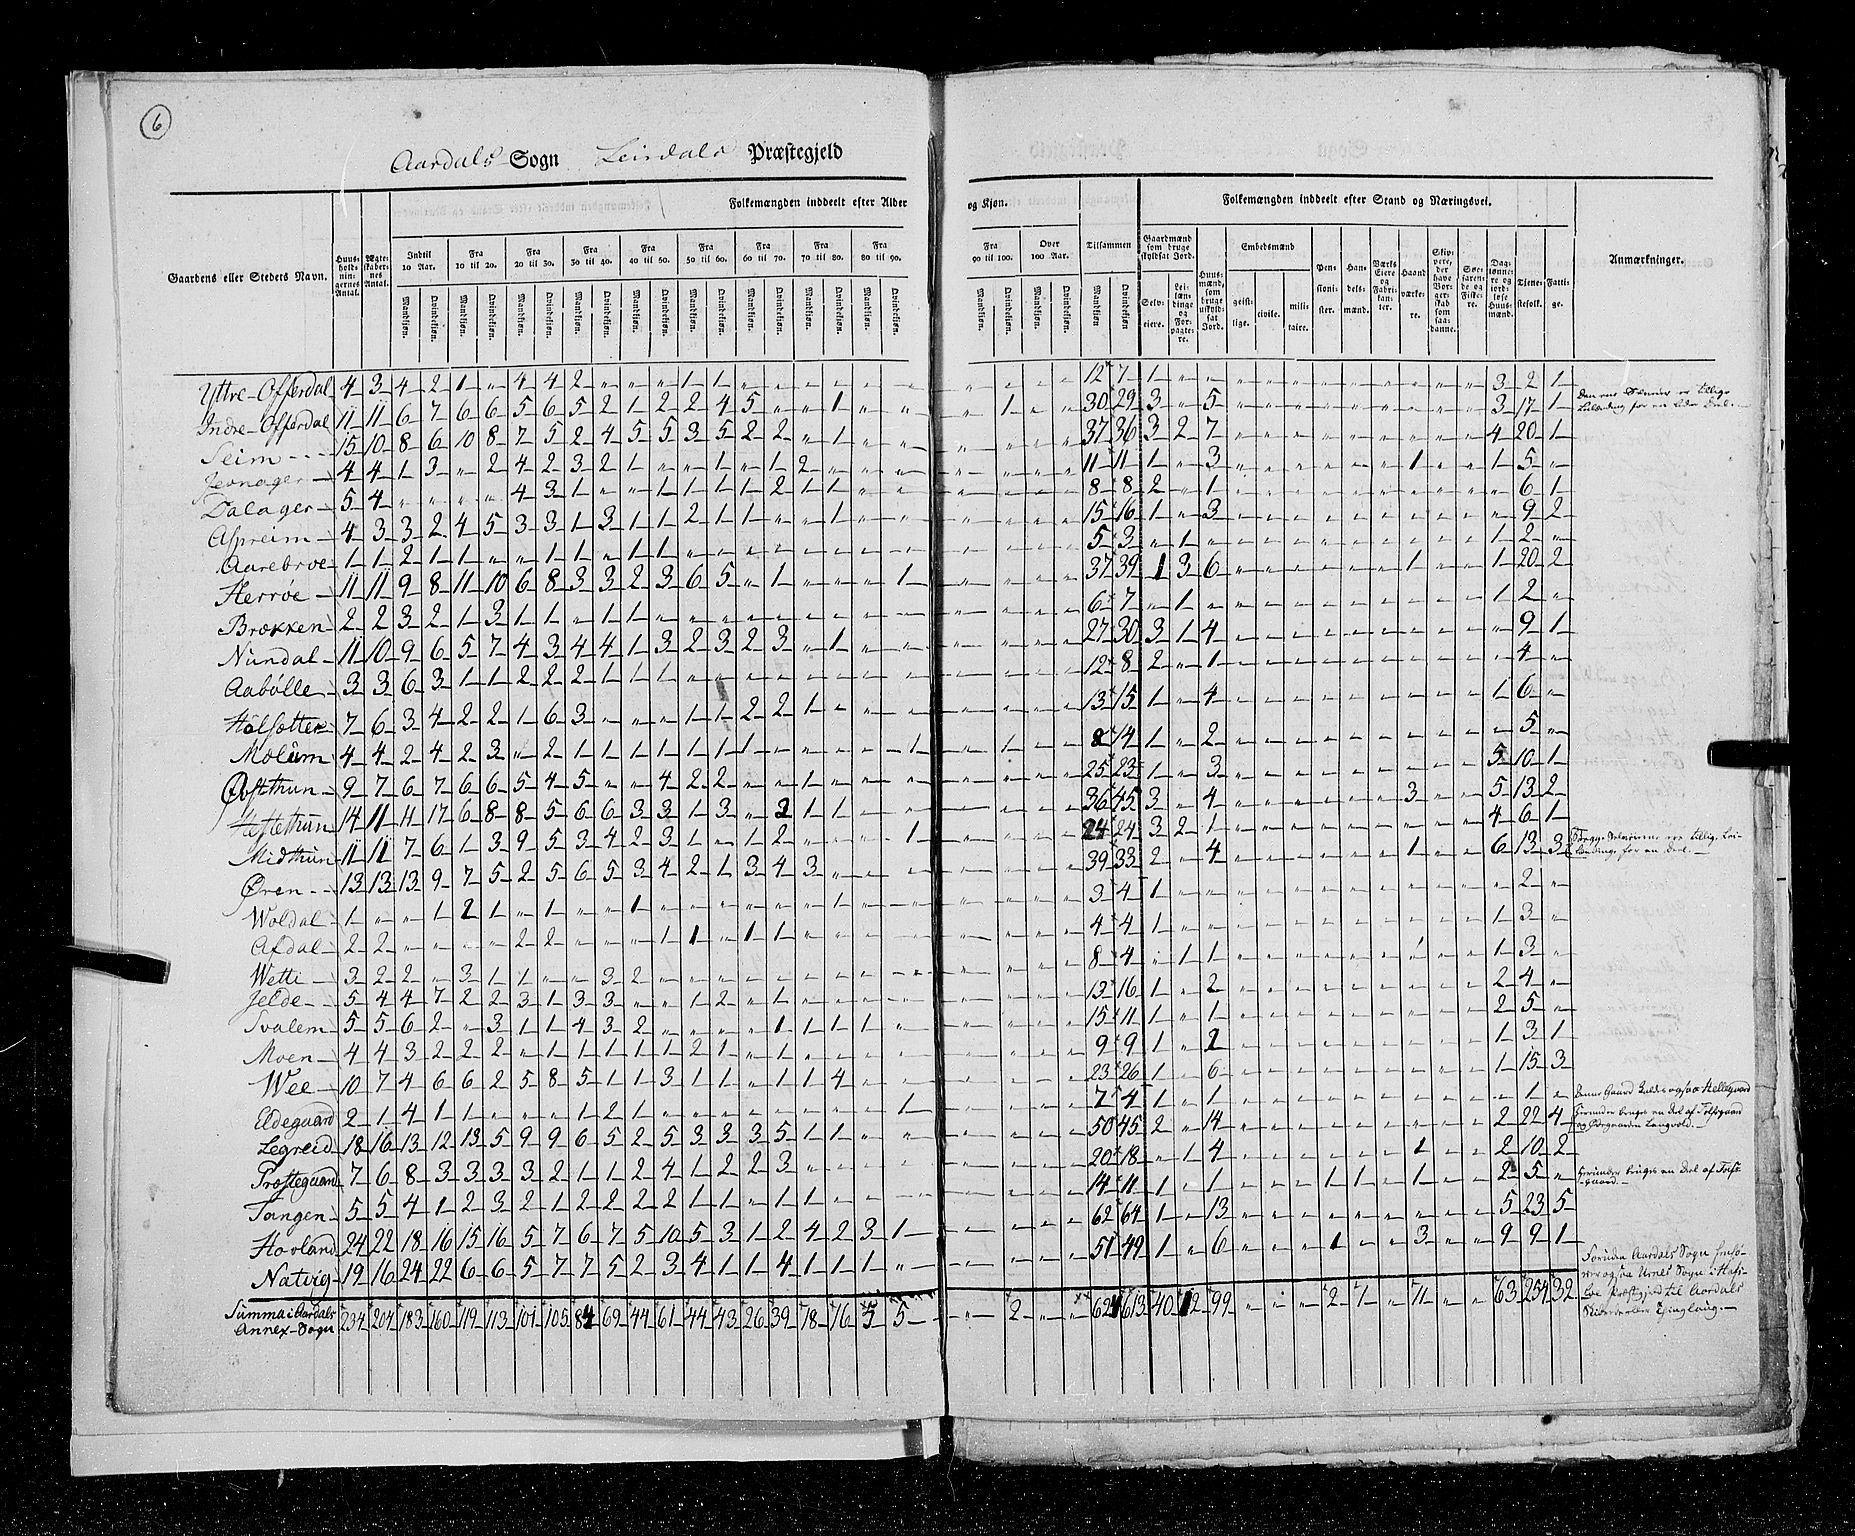 6
Aardals Sogn Leirdals Præstegjeld
Folkemængden inddeelt efter Alder og Kjøn. Folkemængden inddeelt efter Stand og Næringsvei.
Gaardens eller Stedets Navn. Huus-holdnin-gernes Antal. Ægte-skaber-nes Antal. Indtil 10 Aar. Fra 10 til 20. Fra 20 til 30. Fra 30 til 40. Fra 40 til 50. Fra 50 til 60. Fra 60 til 70. Fra 70 til 80. Fra 80 til 90. Fra 90 til 100. Over 100 Aar. Tilsammen Anmærkninger.
Mandkjøn. Qvindekjøn.
Gaardmænd som bruge skyldsat Jord. Selv-eiere. Lei-lændinge og For-pagte-re. Huus-mænd, som bruge uskyldsat Jord. Embedsmænd geist-lige. civile. mili-taire. Pen-sioni-ster. Han-dels-mænd. Værks Eiere og Fabri-kan-ter. Haand-værke-re. Skip-pere, der have Bor-ger-skab som saa-danne. Søe-faren-de og Fiske-re. Dag-lønne-re og jord-løse Huus-mænd. Tjene-stefolk. Fatti-ge.
Yttre-Offerdal 4 3 4 2 1 " 4 4 2 " " " 1 1 " 12 7 1 " " 3 2 1
Indre-Offerdal 11 11 6 7 6 6 5 6 5 2 1 2 2 4 5 " " 1 " " " 1 " " 30 29 3 " 5 3 17 1
Seim 15 10 8 6 10 8 7 5 2 4 5 5 3 5 2 2 " 1 37 36 3 2 7 4 20 1
Jevnager 4 4 1 3 " 2 4 2 3 2 1 " " 1 " 1 2 11 11 1 " 3 1 1 5 "
Dalager 5 4 " " " " 4 3 1 " " 1 1 1 1 2 1 1 8 8 2 " 1 " 6 1
Aspreim 4 3 3 2 4 5 3 3 1 3 1 1 2 1 1 " " 1 15 16 1 " 3 " 9 2
Aarebroe 1 1 2 1 1 " " 1 1 " 1 1 5 3 " 1 " 1 2 "
Herrøe 11 11 9 8 11 10 6 8 3 3 2 3 6 5 " 1 " " " 1 37 39 1 3 6 1 1 20 2
Brækken 2 2 3 2 1 3 1 1 " 1 1 6 7 " 1 " 1 2 "
Nundal 11 10 9 6 5 7 4 3 4 4 1 3 2 3 2 3 " 1 27 30 3 1 4 " 9 1
Aabølle 3 3 6 3 1 1 2 2 2 1 1 1 12 8 2 " 1 " 4 "
Holsetter 7 6 3 4 2 2 1 6 3 " " " 1 1 2 2 1 13 15 1 " 4 1 6 "
Molum 4 4 2 4 2 3 " 2 1 1 1 1 1 1 1 " " " " 1 " 1 8 14 1 " 2 " 5 "
Østthun 9 7 6 7 6 6 5 4 5 " " 4 2 2 " " 1 25 23 1 " 3 5 10 1
Hestethun 14 11 11 17 6 8 8 5 6 6 3 3 1 3 " 2 1 1 36 45 3 " 4 3 5 13 2
Midthun 11 11 7 6 1 3 9 5 3 4 2 3 1 " 1 2 " " " 1 24 24 3 2 1 4 6 1
Øren 13 13 13 9 7 5 2 5 6 5 3 4 2 1 3 4 3 39 33 2 " 4 1 6 13 3
Woldal 1 " " 1 2 1 " 1 " " 1 3 4 1 " 2 "
Afdal 2 2 " " " " 2 2 " " " 1 1 " 1 1 4 4 1 1 3 "
Wetti 3 2 2 " 3 1 1 " " 3 2 8 4 " 1 1 1 1 3 "
Jelde 5 4 4 7 2 2 3 1 3 3 " " 1 2 " 1 13 16 1 " 2 2 4 "
Svalem 5 5 6 2 " 3 1 1 4 3 2 " " " " 1 1 1 1 15 11 1 " 1 2 5 "
Moen 4 4 3 2 2 2 " 1 1 1 1 1 2 1 9 9 1 " 2 1 3 1
Wee 10 7 4 6 6 2 5 8 5 1 1 3 1 1 " 1 1 4 23 26 1 " 6 1 15 3
Eldegaard 2 1 4 1 1 " " " 1 2 1 " " " " " " " " 1 7 4 1 " 1 " 1 "
Legreid 18 16 13 12 13 5 9 9 6 5 2 5 3 3 3 5 1 1 50 45 2 " 14 2 22 4
Præstegaard 7 6 8 3 3 3 3 2 1 1 2 4 1 2 2 3 20 18 " 1 4 1 2 10 2
Tangen 5 5 4 1 2 3 2 1 2 2 2 1 1 " 1 14 11 1 " 1 1 1 1 2 5 "
Hovland 24 22 18 16 15 16 5 7 6 7 5 10 5 3 1 2 4 2 3 1 62 64 1 " 13 5 23 5
Natvig 19 16 24 22 6 6 5 7 7 5 2 3 4 1 1 4 1 1 1 " 51 49 1 " 6 1 3 9 9 1
Summa i Aardals Annex-Sogn 234 204 183 160 119 113 101 105 84 69 44 61 44 43 26 39 18 16 5 5 " " 2 " " 621 613 40 12 99 " " " 2 1 " 11 " " 63 254 32
Den ene Selveier er tillige Leilænding for en liden Deel.
Begge Selveierne ere tillige Leilændinge for en Deel.
Denne Gaard kaldes ogsaa Hellegaard
herunder bruges en Deel af Tofsegaard og Ødegaarden Langvold.
herunder bruges en Deel af Tofsegaard.
Foruden Aardals Sogn henhører ogsaa Urnes Sogn i Hafsloe Præstgield til Aardals Skibrede eller Thinglaug.